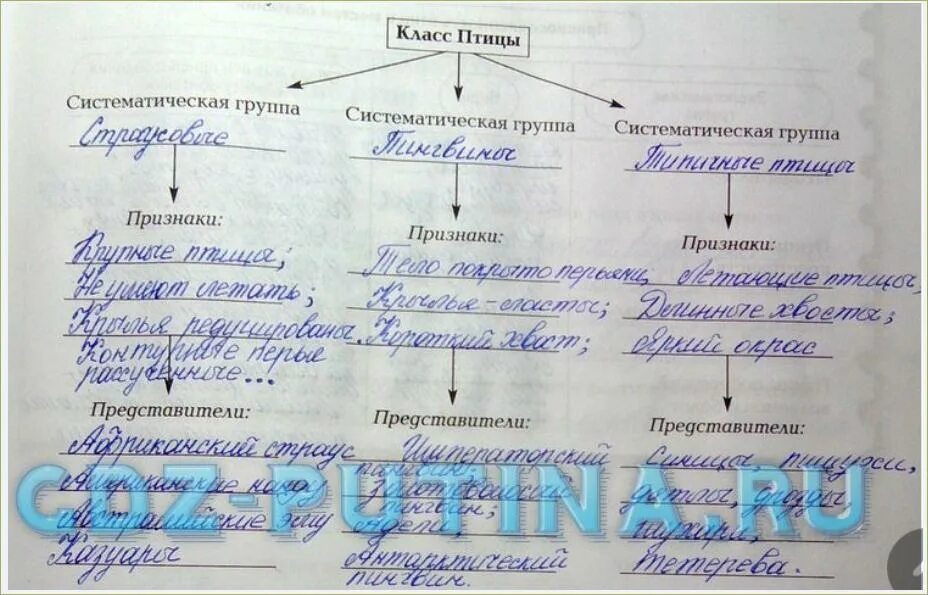 Класс Птицы
Систематическая группа
Страусовые
Признаки:
Крупные птицы;
Не умеют летать;
Крылья редуцированы.
Контурные перья
рассученные...
Представители:
Африканский страус
Американские нанду
Австралийские эму
Казуары
Систематическая группа
Пингвины
Признаки:
Тело покрыто перьями,
Крылья - ласты;
Короткий хвост;
Представители:
Императорский
пингвин.
Золотоволосый
пингвин;
Адели,
Антарктический
пингвин.
Систематическая группа
Типичные птицы
Признаки:
Летающие птицы,
Длинные хвосты;
Яркий окрас
Представители:
Синицы, пищухи,
дятлы, дрозды,
глухари,
тетерева.
GDZ-PUTINA.RU